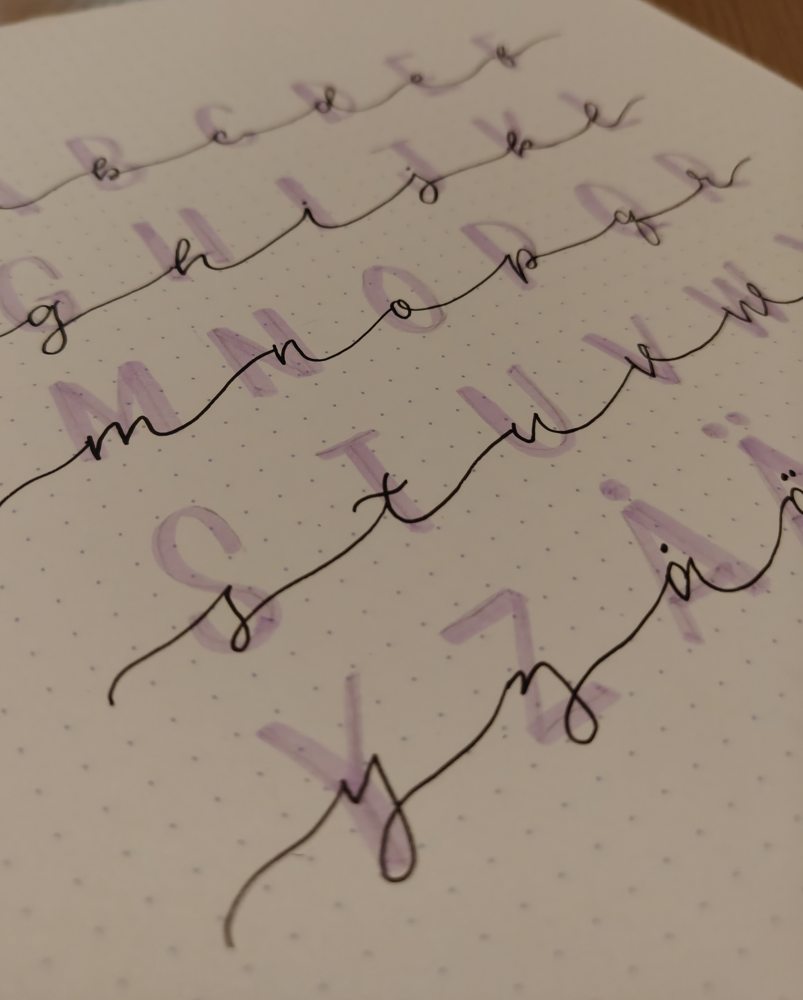 A B C D E F
b c d e f
G H I J K L
g h i j k l
M N O P Q R
m n o p q r
S T U V W
s t u v w
Y Z Å Ä
y z å ä